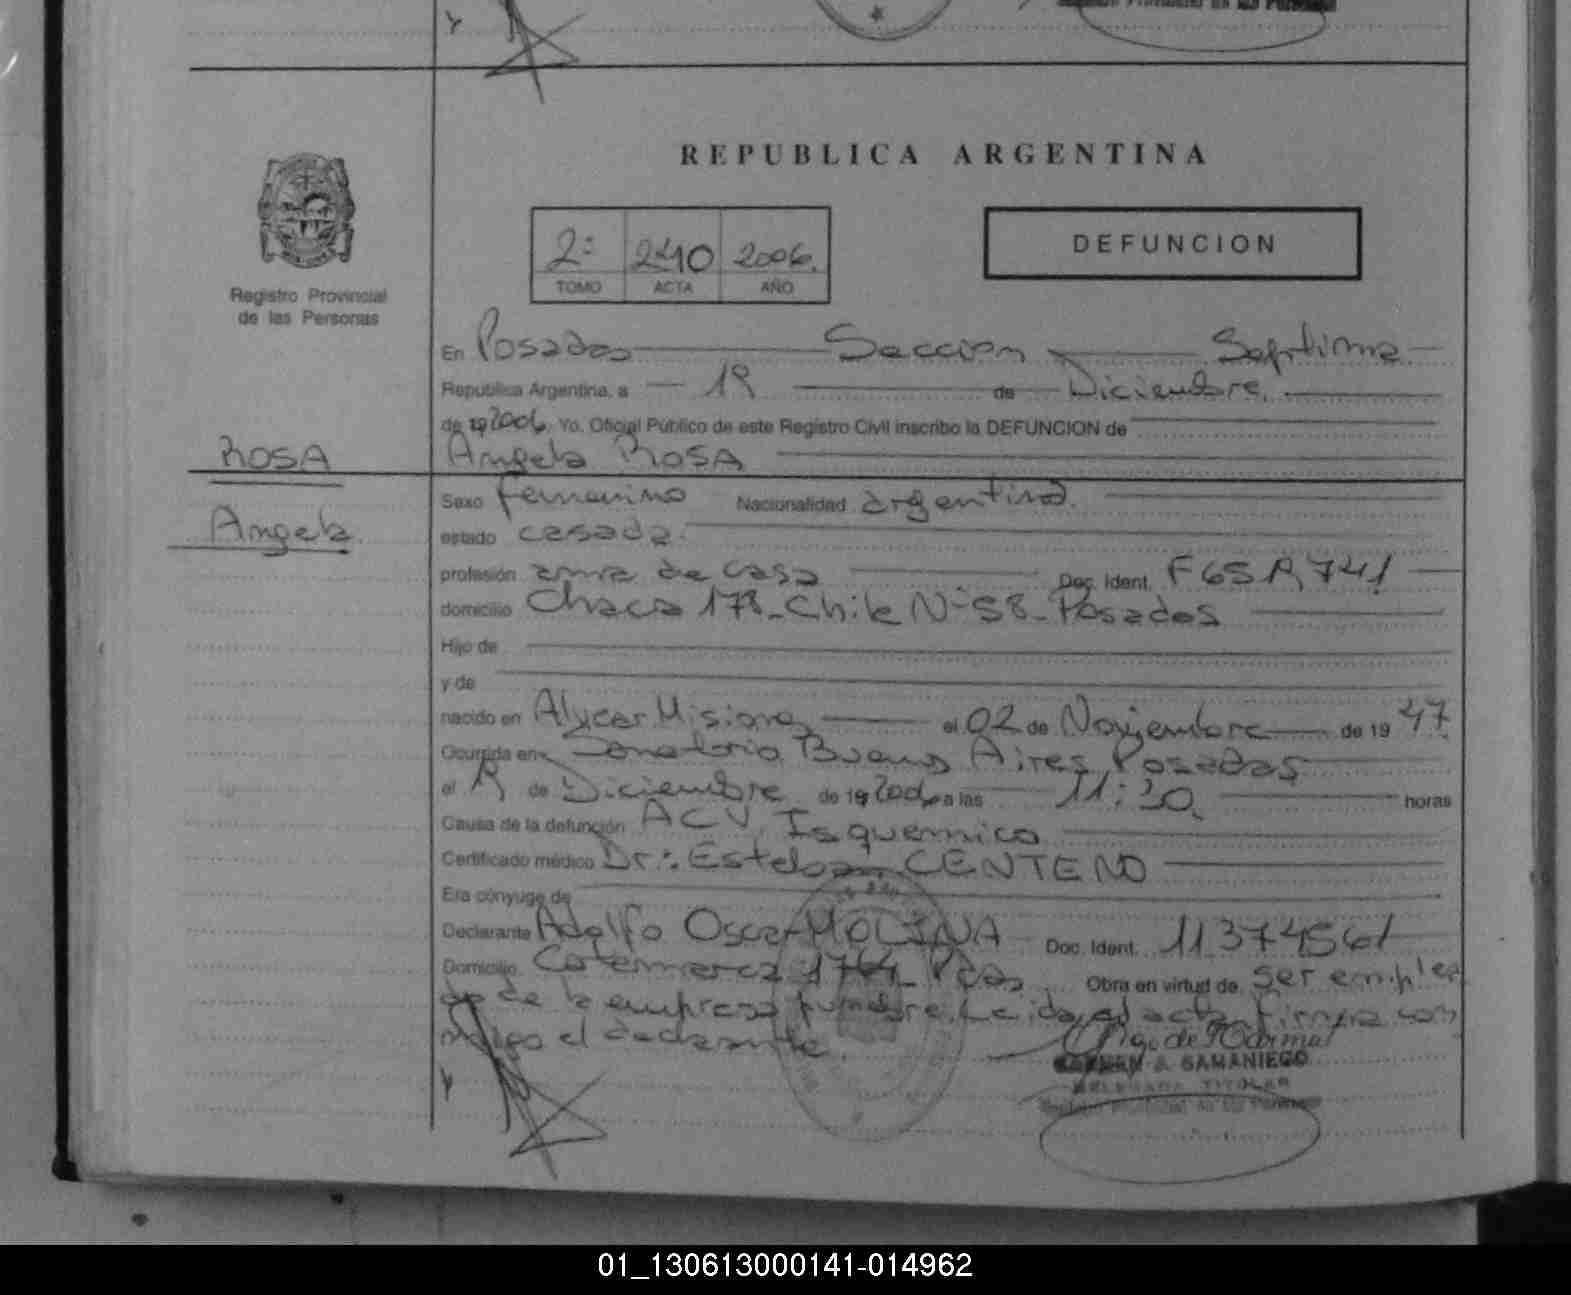 REPUBLICA ARGENTINA
Registro Provincial
de las Personas
2º 2410 2006.
TOMO ACTA AÑO
DEFUNCION
En Posadas Seccion Septima
Republica Argentina, a 19 de Diciembre.
de 19 2006 Yo, Oficial Público de este Registro Civil inscribo la DEFUNCION de
ROSA
Angela ROSA
Angela
Sexo femenino Nacionalidad argentina.
estado casada.
profesión ama de casa Doc. Ident.
domicilio Chaca 178_Chile Nº 58_Posadas
Hijo de
y de
nacido en Misiones el 02 de Noviembre de 19 47
Ocurrida en Sanatorio Buenos Aires Posadas
el de Diciembre de 19 2006 a las 11:30 horas
Causa de la defunción ACV Isquemico
Certificado médico Dr: Esteban CENTENO
Era cónyuge de
Declarante Adolfo Oscar MOLINA Doc. Ident. 11374561
Domicilio Catamarca Pdas Obra en virtud de ser emplea
do de la empresa funebre. Leida el acta firma con
migo el declarante.
Y
A. SAMANIEGO
DELEGADA TITULAR
01_130613000141-014962